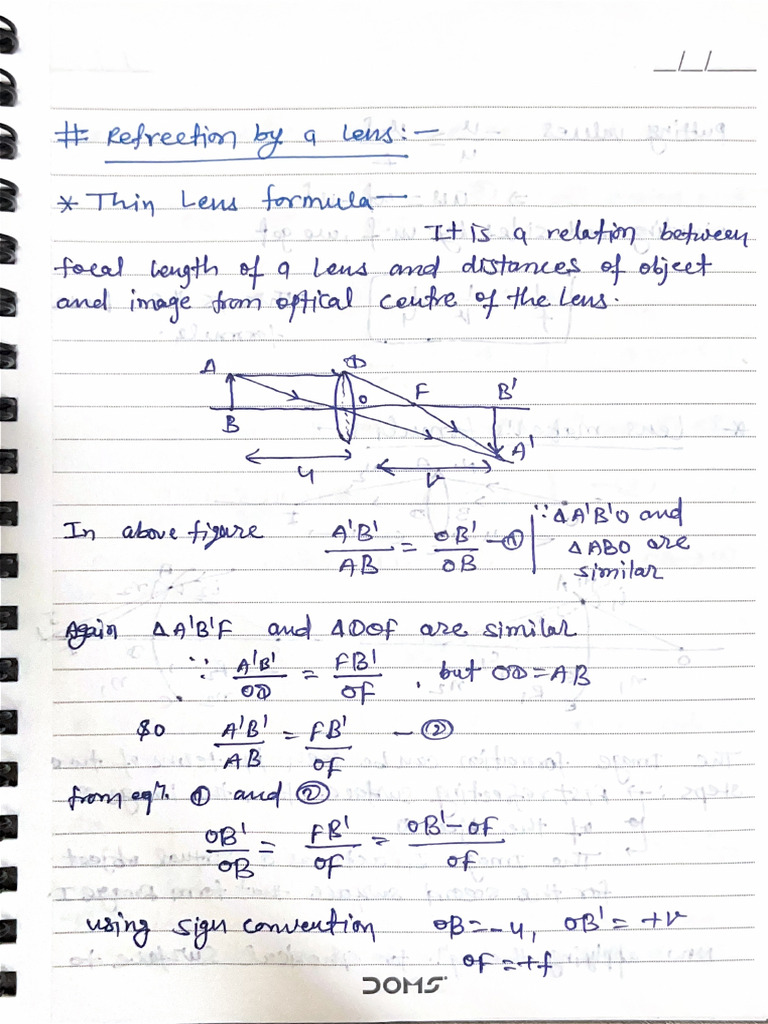 __/__/____
# Refrection by a Lens:-
* Thin Lens formula-
It is a relation between
focal length of a lens and distances of object
and image from optical centre of the lens.
A D
O F B'
B
A'
u v
In above figure A'B'/AB = OB'/OB -① | ∵ ΔA'B'O and
ΔABO are
similar
Again ΔA'B'F and ΔDOF are similar
∵ A'B'/OD = FB'/OF , but OD=AB
So A'B'/AB = FB'/OF -②
from eqn. ① and ②
OB'/OB = FB'/OF = OB'-OF/OF
using sign convention OB=-u, OB'=+v
OF=+f
DOMS